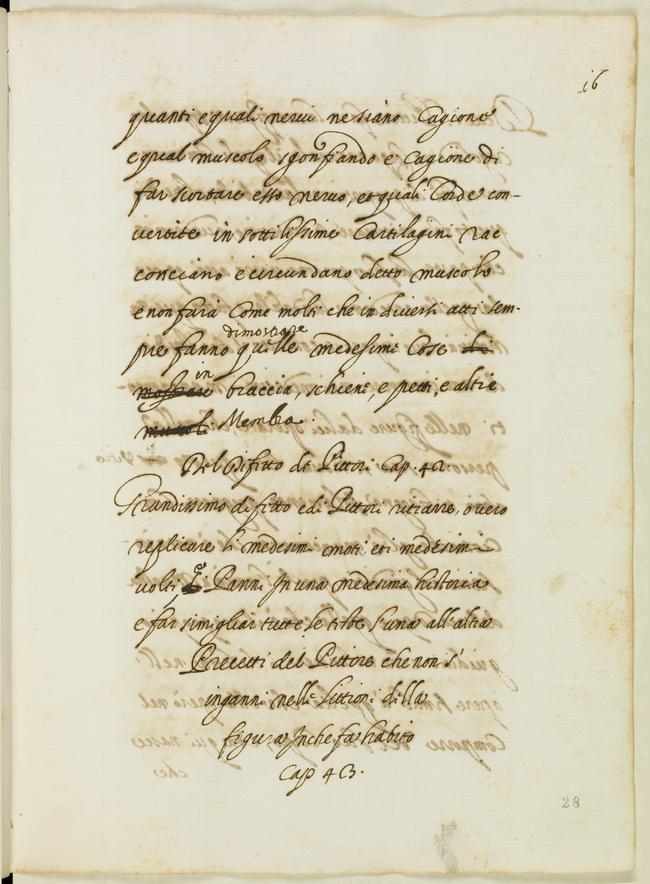 16
quanti e quali nerui ne siano Cagione
e qual muscolo sgonfiando e Cagione di
far scortare esso neruo, et quali Corde con-
uertite in sottilissime Cartilagini rac
conciano e circundano detto muscolo
e non farà Come molti che in diuersi atti sem-
dimostrare
pre fanno quelle medesime Cose
in
mostrare braccia, schiene, e petti, e altre
muscoli Membra.
Del Difetto de Pittori Cap. 42.
Grandissimo difetto e di Pittori ritrarre, o uero
replicare li medesimi moti, et i medesimi
uolti e Panni In una medesima historia
e far simigliar tutte le teste l'una all'altra
Precetti del Pittore che non s'
inganni nell' elittioni della
figura In che fa habito
Cap 43.
28